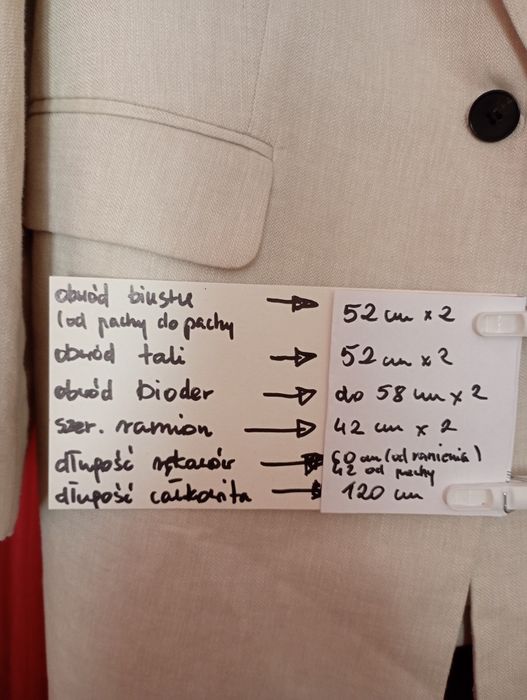 obwód biustu → 52 cm x 2
(od pachy do pachy
obwód tali → 52 cm x 2
obwód bioder → do 58 cm x 2
szer. ramion → 42 cm x 2
długość rękawów → 60 cm (od ramienia)
42 od pachy
długość całkowita → 120 cm